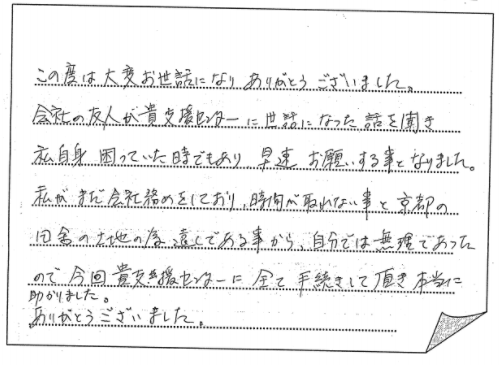 この度は大変お世話になり ありがとうございました。
会社の友人が貴支援センターに世話になった話を聞き
私自身 困っていた時でもあり、早速 お願いする事となりました。
私がまだ会社務めをしており、時間が取れない事と京都の
田舎の土地の為 遠しである事から、自分では無理であった
ので今回貴支援センターに 全て 手続きして頂き 本当に
助かりました。
ありがとうございました。